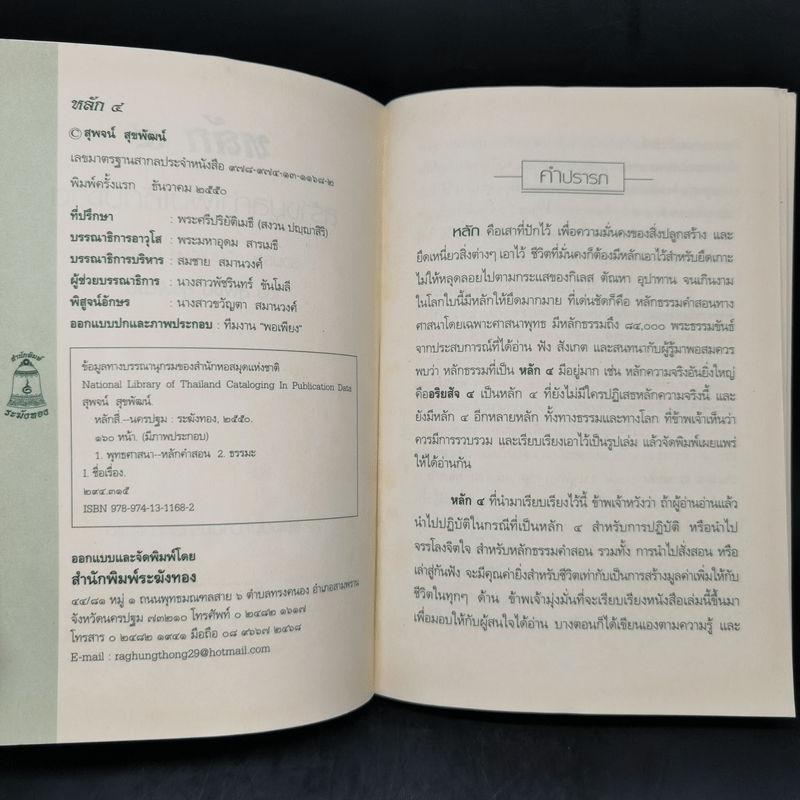 หลัก ๔
© สุพจน์ สุขพัฒน์
เลขมาตรฐานสากลประจำหนังสือ ๙๗๘-๙๗๔-๑๓-๑๑๖๘-๒
พิมพ์ครั้งแรก ธันวาคม ๒๕๕๐
ที่ปรึกษา : พระศรีปริยัติเมธี (สงวน ปญฺญาสิริ)
บรรณาธิการอาวุโส : พระมหาอุดม สารเมธี
บรรณาธิการบริหาร : สมชาย สมานวงศ์
ผู้ช่วยบรรณาธิการ : นางสาวพัชรินทร์ ขันโมลี
พิสูจน์อักษร : นางสาวขวัญตา สมานวงศ์
ออกแบบปกและภาพประกอบ : ทีมงาน "พอเพียง"
ข้อมูลทางบรรณานุกรมของสำนักหอสมุดแห่งชาติ
National Library of Thailand Cataloging In Publication Data
สุพจน์ สุขพัฒน์.
หลักสี่.--นครปฐม : ระฆังทอง, ๒๕๕๐.
๑๖๐ หน้า. (มีภาพประกอบ)
1. พุทธศาสนา--หลักคำสอน 2. ธรรมะ
I. ชื่อเรื่อง.
๒๙๔.๓๑๕
ISBN 978-974-13-1168-2
สำนักพิมพ์
ระฆังทอง
ออกแบบและจัดพิมพ์โดย
สำนักพิมพ์ระฆังทอง
๔๔/๘๑ หมู่ ๑ ถนนพุทธมณฑลสาย ๖ ตำบลทรงคนอง อำเภอสามพราน
จังหวัดนครปฐม ๗๓๒๑๐ โทรศัพท์ ๐ ๒๔๘๒ ๑๖๑๗
โทรสาร ๐ ๒๔๘๒ ๑๙๔๑ มือถือ ๐๘ ๙๖๖๗ ๒๔๖๘
E-mail : raghungthong29@hotmail.com
คำปรารภ
หลัก คือเสาที่ปักไว้ เพื่อความมั่นคงของสิ่งปลูกสร้าง และ
ยึดเหนี่ยวสิ่งต่างๆ เอาไว้ ชีวิตที่มั่นคงก็ต้องมีหลักเอาไว้สำหรับยึดเกาะ
ไม่ให้หลุดลอยไปตามกระแสของกิเลส ตัณหา อุปาทาน จนเกินงาม
ในโลกใบนี้มีหลักให้ยึดมากมาย ที่เด่นชัดก็คือ หลักธรรมคำสอนทาง
ศาสนาโดยเฉพาะศาสนาพุทธ มีหลักธรรมถึง ๘๔,๐๐๐ พระธรรมขันธ์
จากประสบการณ์ที่ได้อ่าน ฟัง สังเกต และสนทนากับผู้รู้มาพอสมควร
พบว่า หลักธรรมที่เป็น หลัก ๔ มีอยู่มาก เช่น หลักความจริงอันยิ่งใหญ่
คืออริยสัจ ๔ เป็นหลัก ๔ ที่ยังไม่มีใครปฏิเสธหลักความจริงนี้ และ
ยังมีหลัก ๔ อีกหลายหลัก ทั้งทางธรรมและทางโลก ที่ข้าพเจ้าเห็นว่า
ควรมีการรวบรวม และเรียบเรียงเอาไว้เป็นรูปเล่ม แล้วจัดพิมพ์เผยแพร่
ให้ได้อ่านกัน
หลัก ๔ ที่นำมาเรียบเรียงไว้นี้ ข้าพเจ้าหวังว่า ถ้าผู้อ่านอ่านแล้ว
นำไปปฏิบัติในกรณีที่เป็นหลัก ๔ สำหรับการปฏิบัติ หรือนำไป
จรรโลงจิตใจ สำหรับหลักธรรมคำสอน รวมทั้ง การนำไปสั่งสอน หรือ
เล่าสู่กันฟัง จะมีคุณค่ายิ่งสำหรับชีวิตเท่ากับเป็นการสร้างมูลค่าเพิ่มให้กับ
ชีวิตในทุกๆ ด้าน ข้าพเจ้ามุ่งมั่นที่จะเรียบเรียงหนังสือเล่มนี้ขึ้นมา
เพื่อมอบให้กับผู้สนใจได้อ่าน บางตอนก็ได้เขียนเองตามความรู้ และ